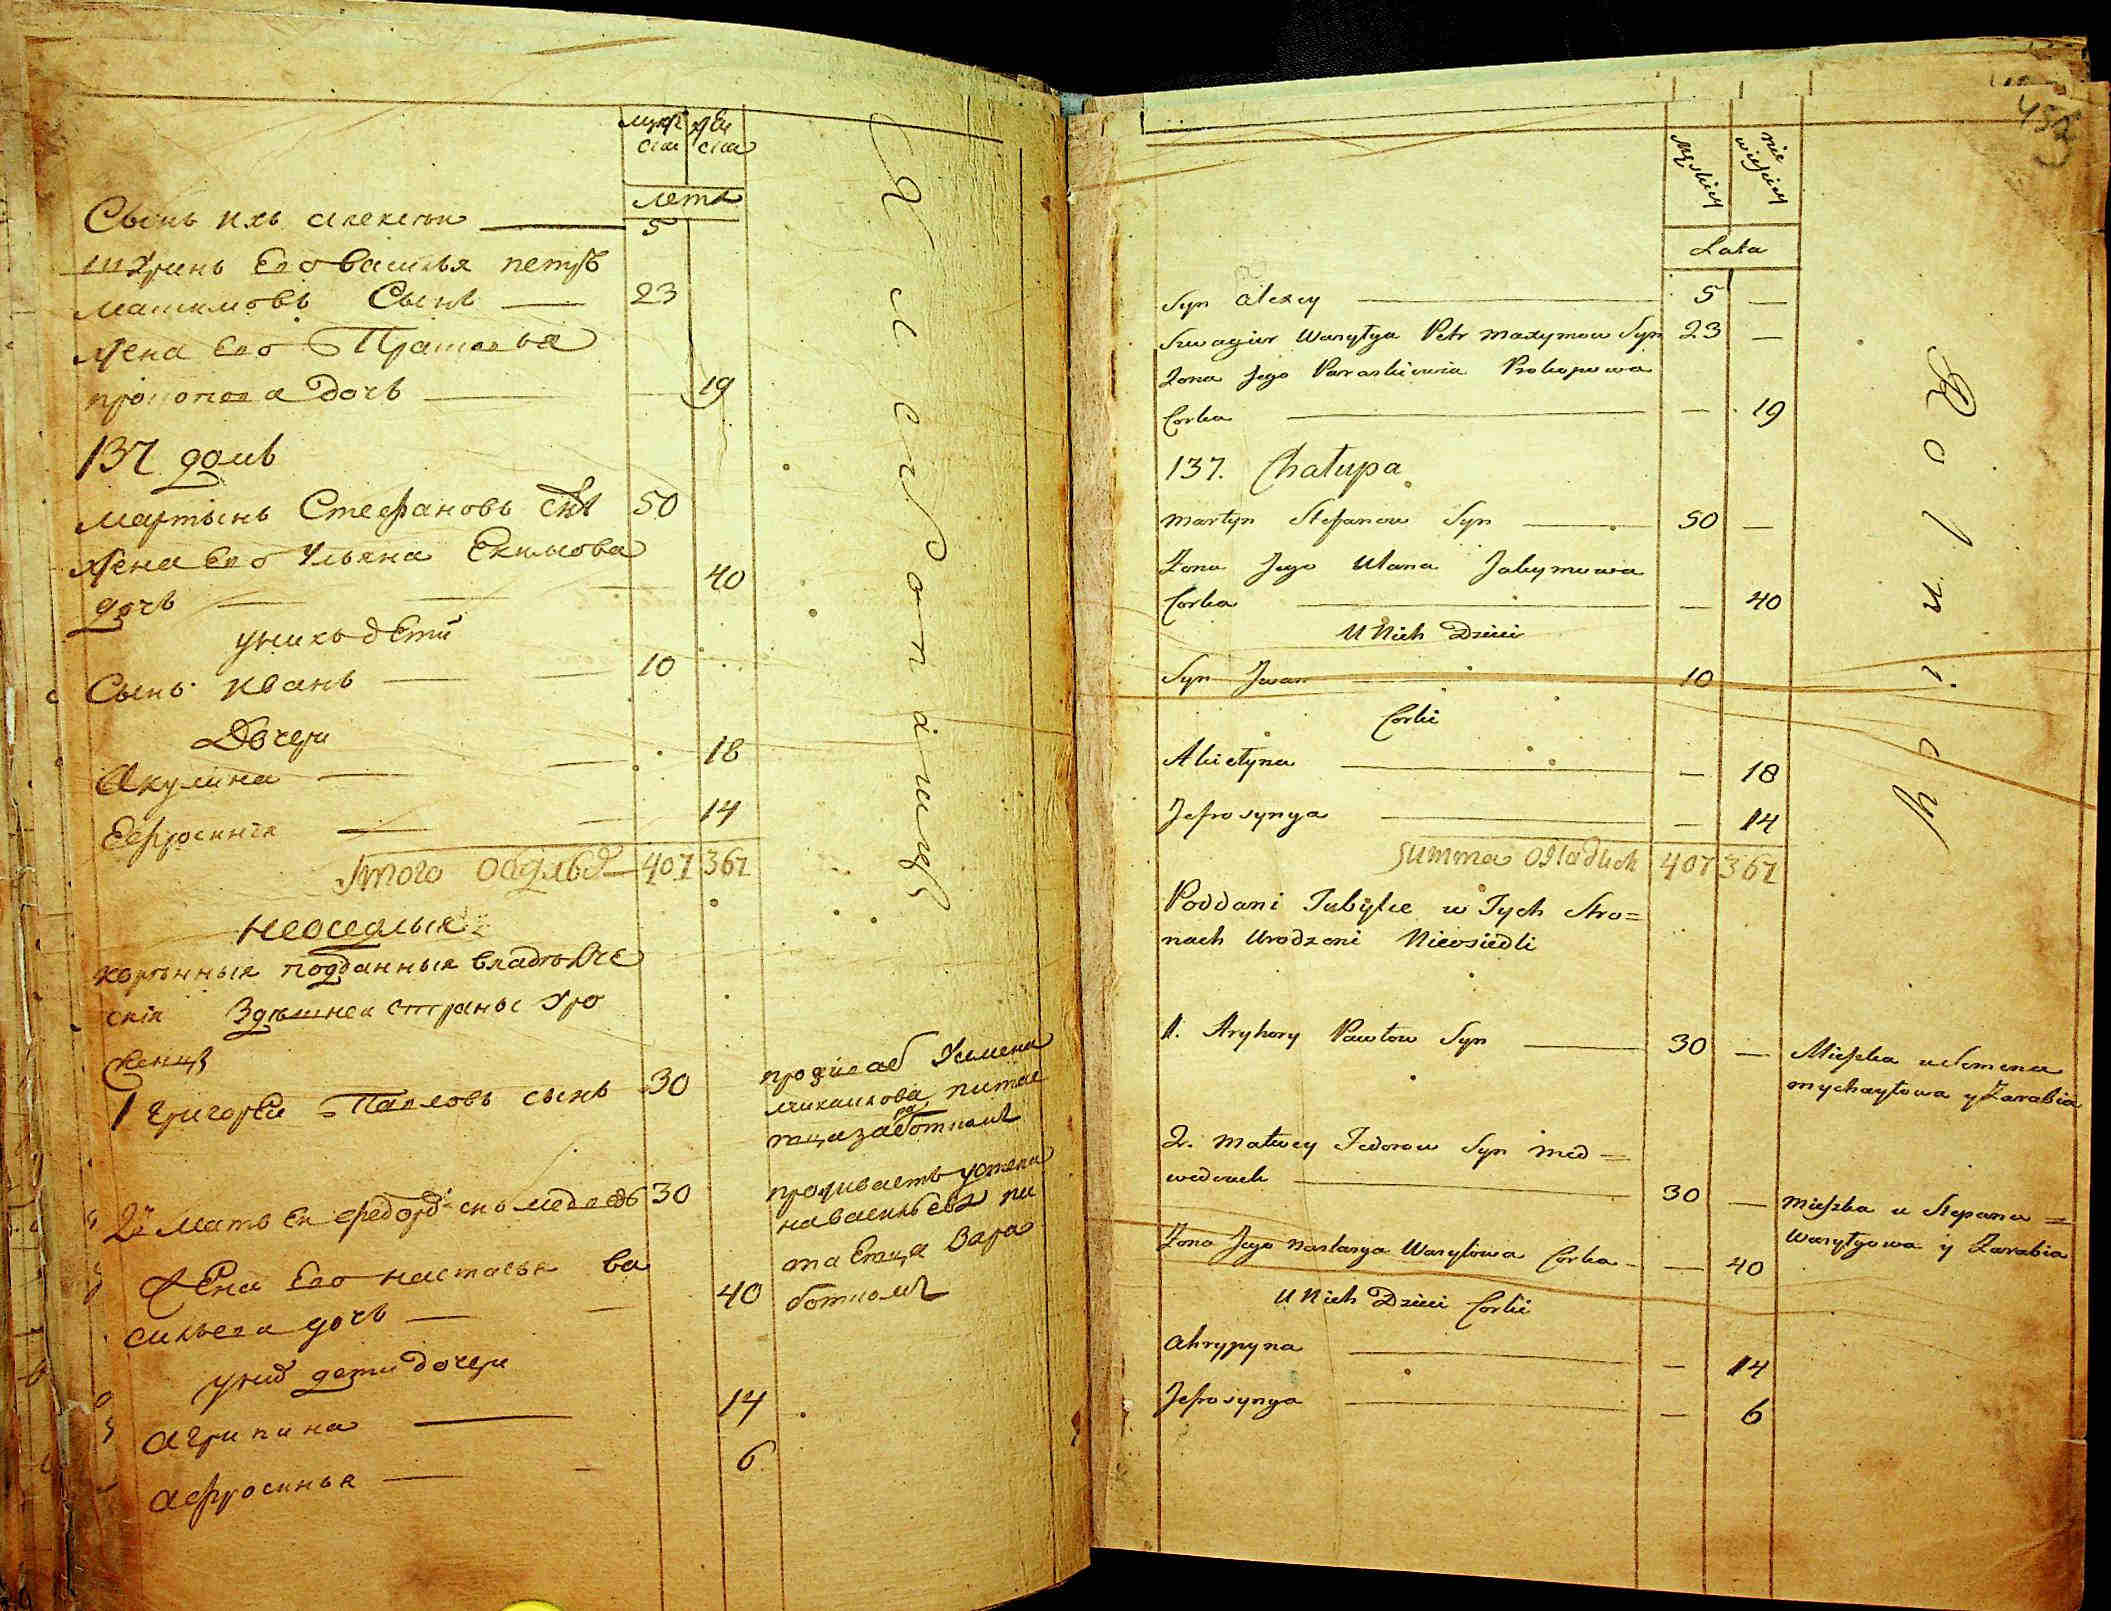 муж жен
ска ска
лета
Сынъ ихъ алексеи 5
шуринъ Ево Васильа петръ
Мацимовъ Сынъ 23
Жена Ево Прасковья
прокопова дочь 19
137 домъ
Мартынъ Стефановъ снъ 50
Жена Ево Ульяна Екимова
дочь 40
у нихъ дети
Сынъ Иванъ 10
Дочери
Акулина 18
Ефросиния 14
Итого 407 367
неоседлыя
подданныя владелче
ския Здешнеи страны уро
женцы
1 Григореи Павловъ сынъ 30
Михаилова питае
проживаетъ у степа
на васильева пи
таетца Зара
боткомъ
2 Матвеи федоров снъ медведь 30
Жена Ево настасья ва
сильева дочь 40
у них дети дочери
агрипина 14
афросинья 6
Męskiey
nie wieskiey
Lata
Syn Alexey 5 —
Szwagier Wasyłya Petr Maxymow Syn 23 —
Zona Jego Paraskiewia Prokopowa
Corka — 19
137. Chałupa
Martyn Stefanow Syn 50 —
Zona Jego Ulana Jakymowa
Corka — 40
U Nich Dzieci
Syn Jwan 10
Corki
Akietyna — 18
Jefrosynya — 14
Summa Osiadłych 407 367
Poddani Tubylce w Tych Stro=
nach Urodzeni Nieosiedli
1. Hryhory Pawłow Syn 30 — Mieszka u Semena
Mychayłowa y Zarabia
2. Matwey Fedorow Syn Med=
wedeuk 30 — Mieszka u Stepana =
Wasyłyowa y Zarabia
Zona Jego Nastasya Wasylowa Corka — 40
U Nich Dzieci Corki
Ahrypyna — 14
Jefrosynya — 6
Rolniey